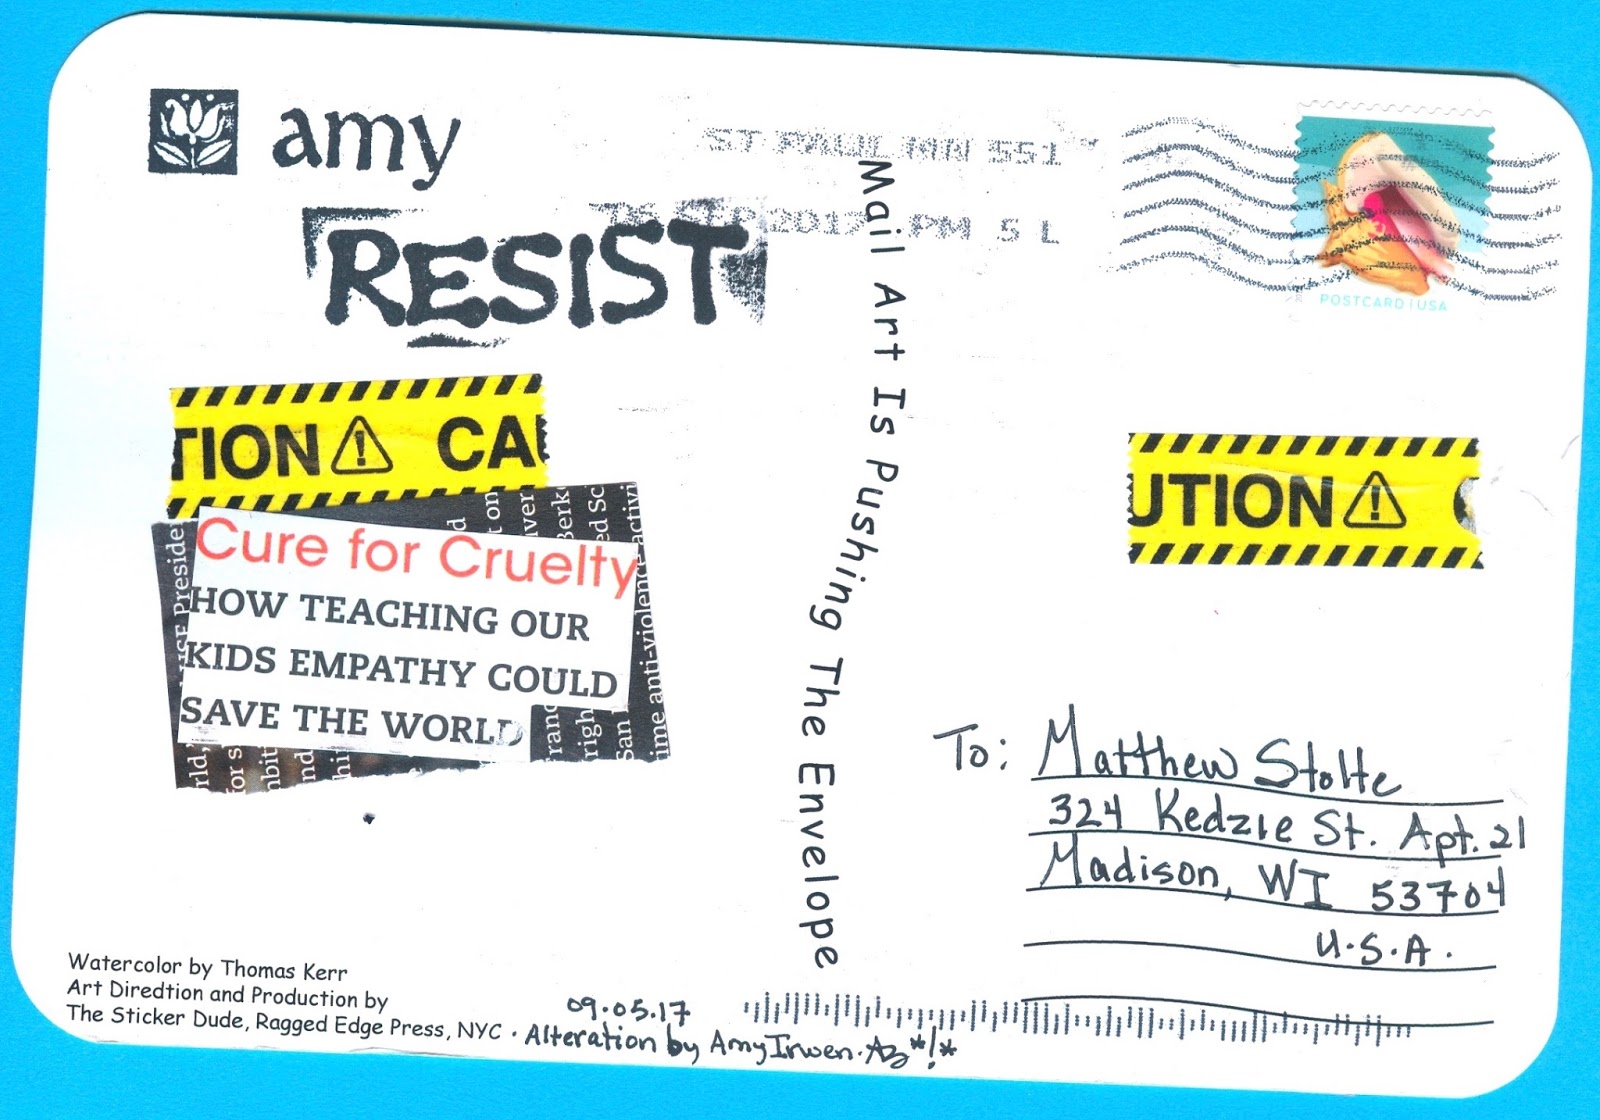 amy
RESIST
ST PAUL MN 551
SEP 2017 PM 5 L
POSTCARD | USA
Mail Art Is Pushing The Envelope
TION CAU
UTION
Cure for Cruelty
HOW TEACHING OUR
KIDS EMPATHY COULD
SAVE THE WORLD
To: Matthew Stolte
324 Kedzie St. Apt. 21
Madison, WI 53704
U.S.A.
Watercolor by Thomas Kerr
Art Diredtion and Production by
The Sticker Dude, Ragged Edge Press, NYC · Alteration by Amy Irwen.
09.05.17